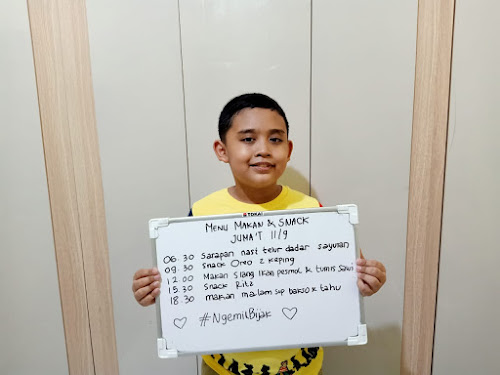 TOKAI
MENU MAKAN & SNACK
JUMA'T 11/9
06.30 Sarapan nasi telur dadar sayuran
09.30 Snack Oreo 2 keping
12.00 Makan Siang Ikan pesmol & tumis Sawi
15.30 Snack Ritz
18.30 makan malam sup bakso & tahu
#NgemilBijak